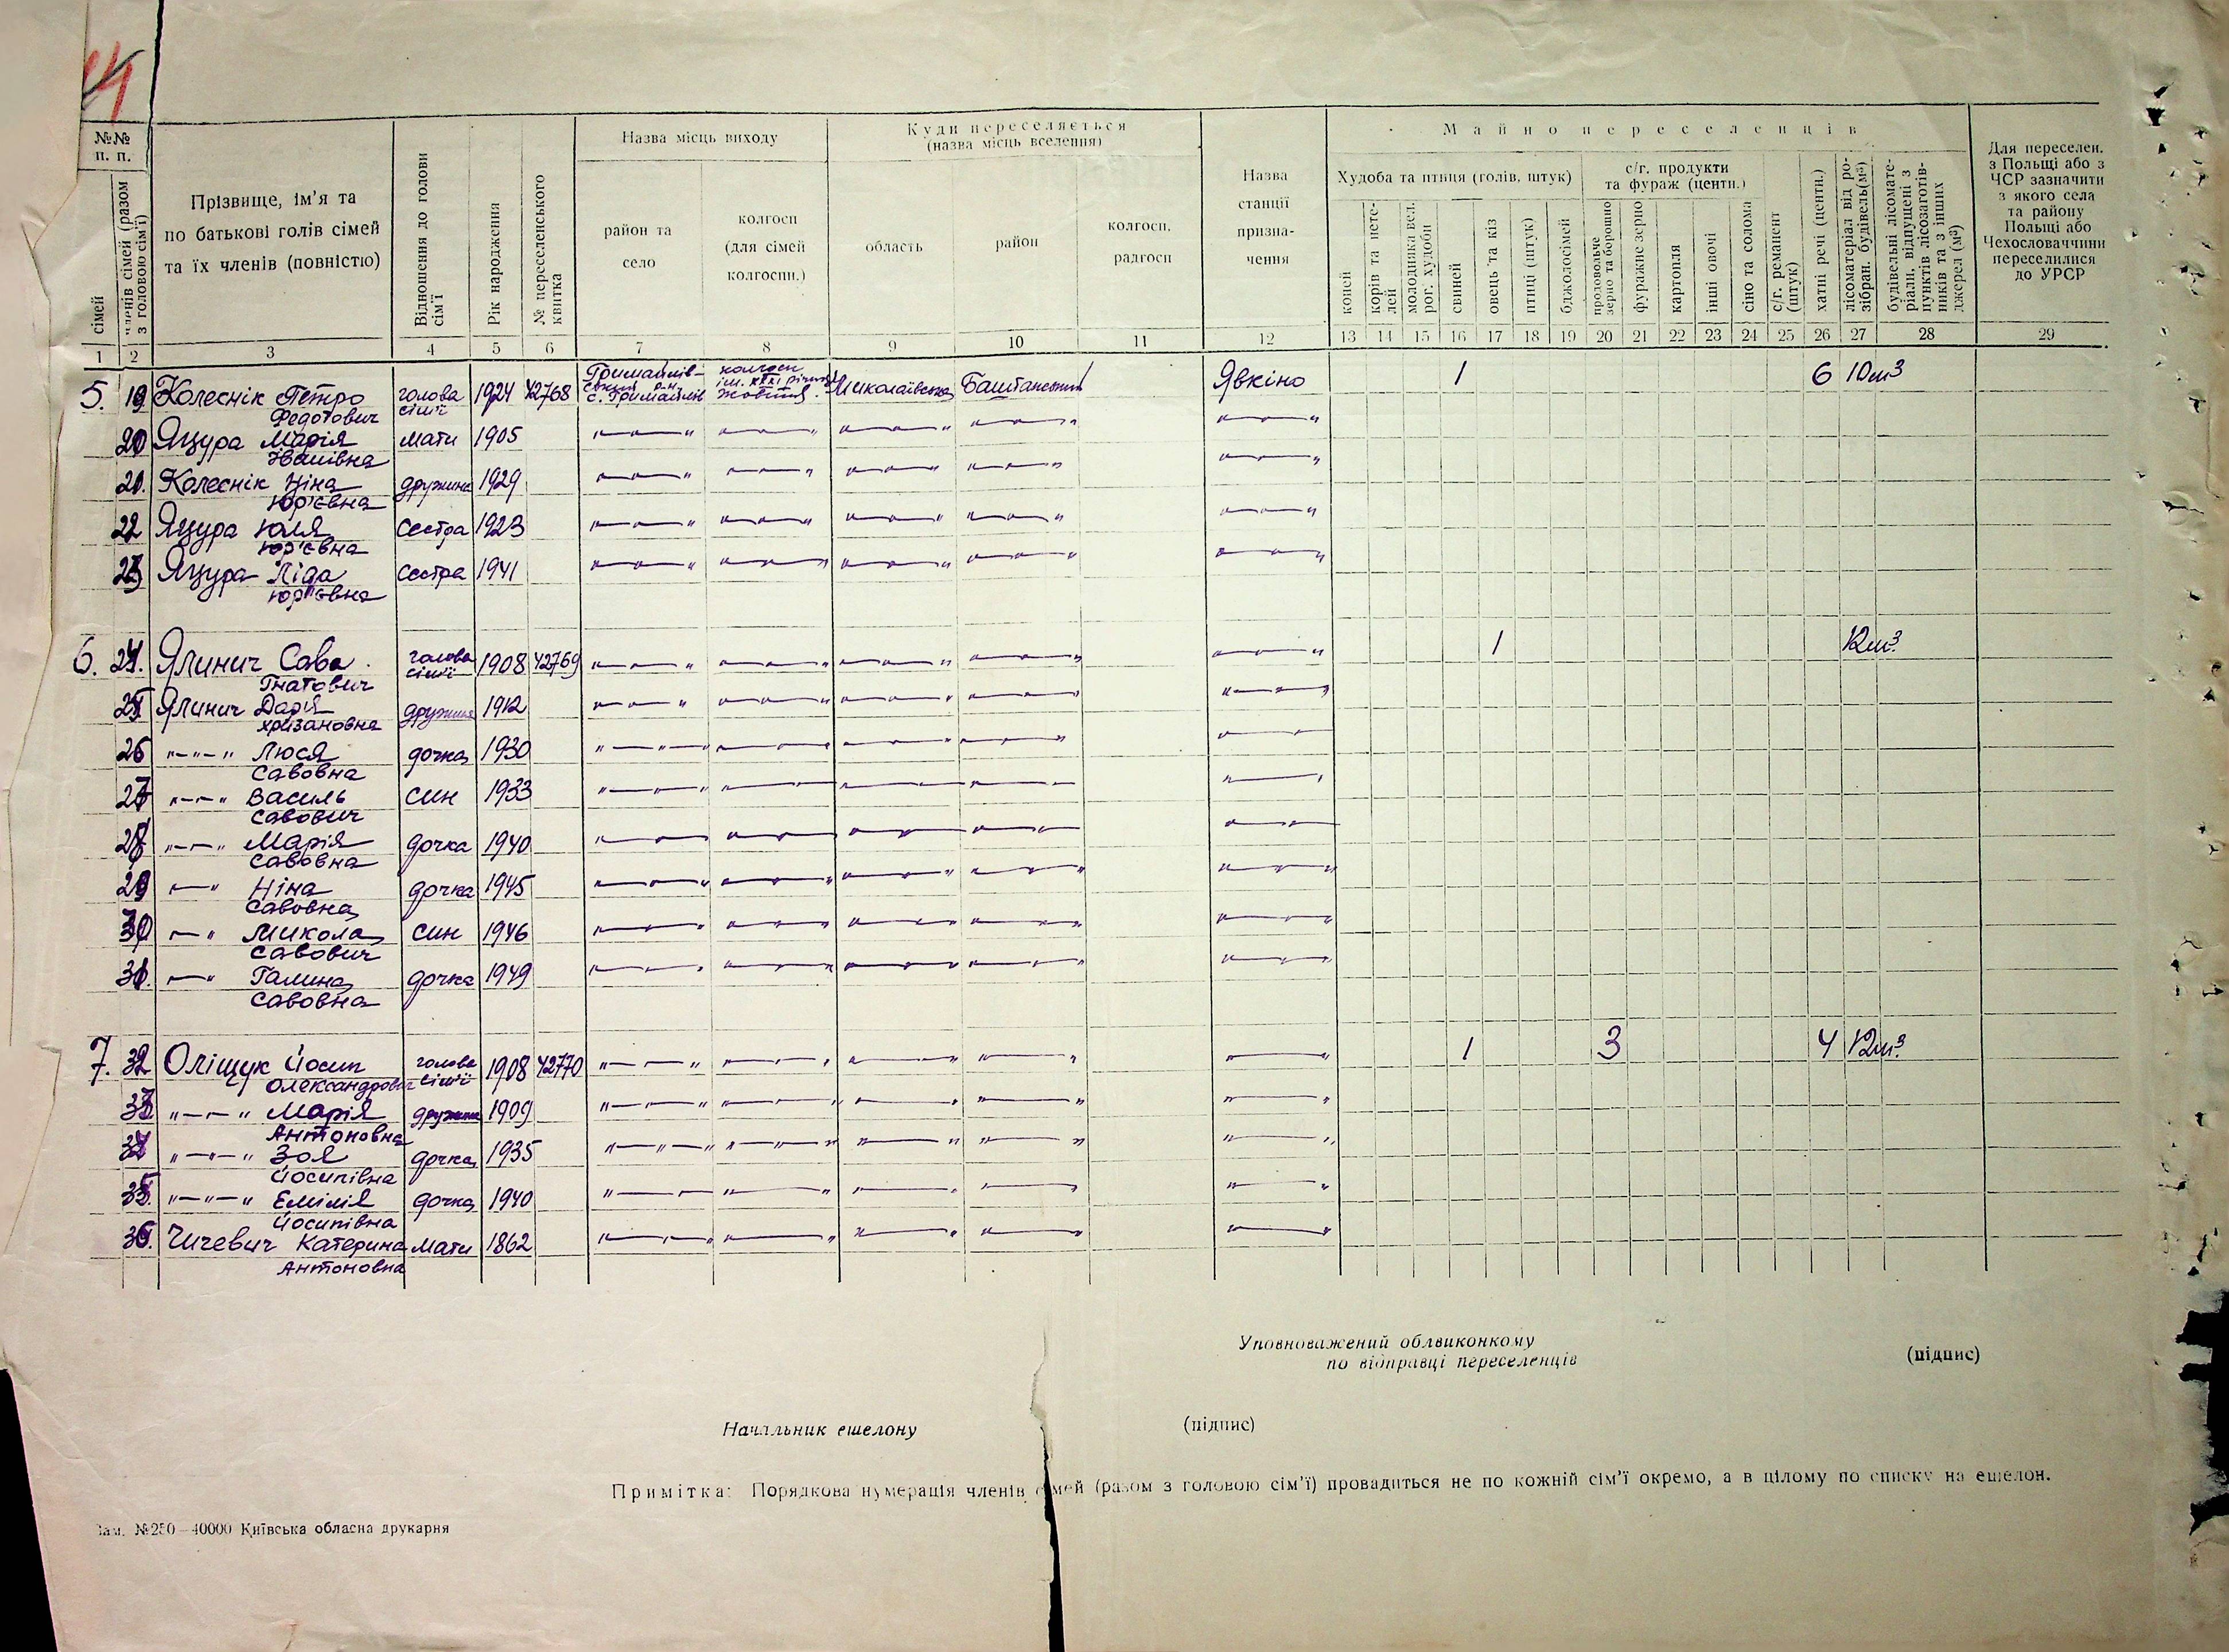 14
№№ п. п.
сімей
членів сімей (разом з головою сім'ї)
Прізвище, ім'я та
по батькові голів сімей
та їх членів (повністю)
Відношення до голови сім'ї
Рік народження
№ переселенського квитка
Назва місць виходу
район та
село
колгосп
(для сімей
колгоспн.)
Куди переселяється
(назва місць вселення)
область
район
колгосп,
радгосп
Назва
станції
призна-
чення
Майно переселенців
Худоба та птиця (голів, штук)
коней
корів та нете-
лей
молодняка вел.
рог. худоби
свиней
овець та кіз
птиці (штук)
бджолосімей
с/г. продукти
та фураж (центн.)
продовольче
зерно та борошно
фуражне зерно
картопля
інші овочі
сіно та солома
с/г. реманент
(штук)
хатні речі (центн.)
лісоматеріал від ро-
зібран. будівель (м³)
будівельні лісомате-
ріали, відпущені з
пунктів лісозаготів-
ників та з інших
джерел (м³)
Для переселен.
з Польщі або з
ЧСР зазначити
з якого села
та району
Польщі або
Чехословаччини
переселилися
до УРСР
1 2 3 4 5 6 7 8 9 10 11 12 13 14 15 16 17 18 19 20 21 22 23 24 25 26 27 28 29
5. 19 Колеснік Петро голова 1924 42768 Гримайлів- колгосп Миколаївська Баштанський Явкіно 1 6 10м³
Федотович сім'ї ський р-н ім. XXXI річниці
с. Гримайлів Жовтня.
20 Яцура Марія мати 1905
Іванівна
21. Колеснік Ніна дружина 1929
Юр'євна
22 Яцура Юля сестра 1923
Юр'євна
23 Яцура Ліда сестра 1941
Юр'євна
6. 24. Ялинич Сава голова 1908 42769 1 12м³.
Гнатович сім'ї
25. Ялинич Дарія дружина 1912
Хризановна
26 Люся дочка 1930
Савовна
27 Василь син 1933
Савович
28 Марія дочка 1940
Савовна
29 Ніна дочка 1945
Савовна
30 Микола син 1946
Савович
31. Галина дочка 1949
Савовна
7. 32 Оліщук Йосип голова 1908 42770 1 3 4 12м³.
Олександрович сім'ї
33 Марія дружина 1909
Антоновна
34 Зоя дочка 1935
Йосипівна
35. Емілія дочка 1940
Йосипівна
36. Чичевич Катерина мати 1862
Антоновна
Уповноважений облвиконкому
по відправці переселенців (підпис)
Начальник ешелону (підпис)
Примітка: Порядкова нумерація членів сімей (разом з головою сім'ї) провадиться не по кожній сім'ї окремо, а в цілому по списку на ешелон.
Зам. №250—40000 Київська обласна друкарня